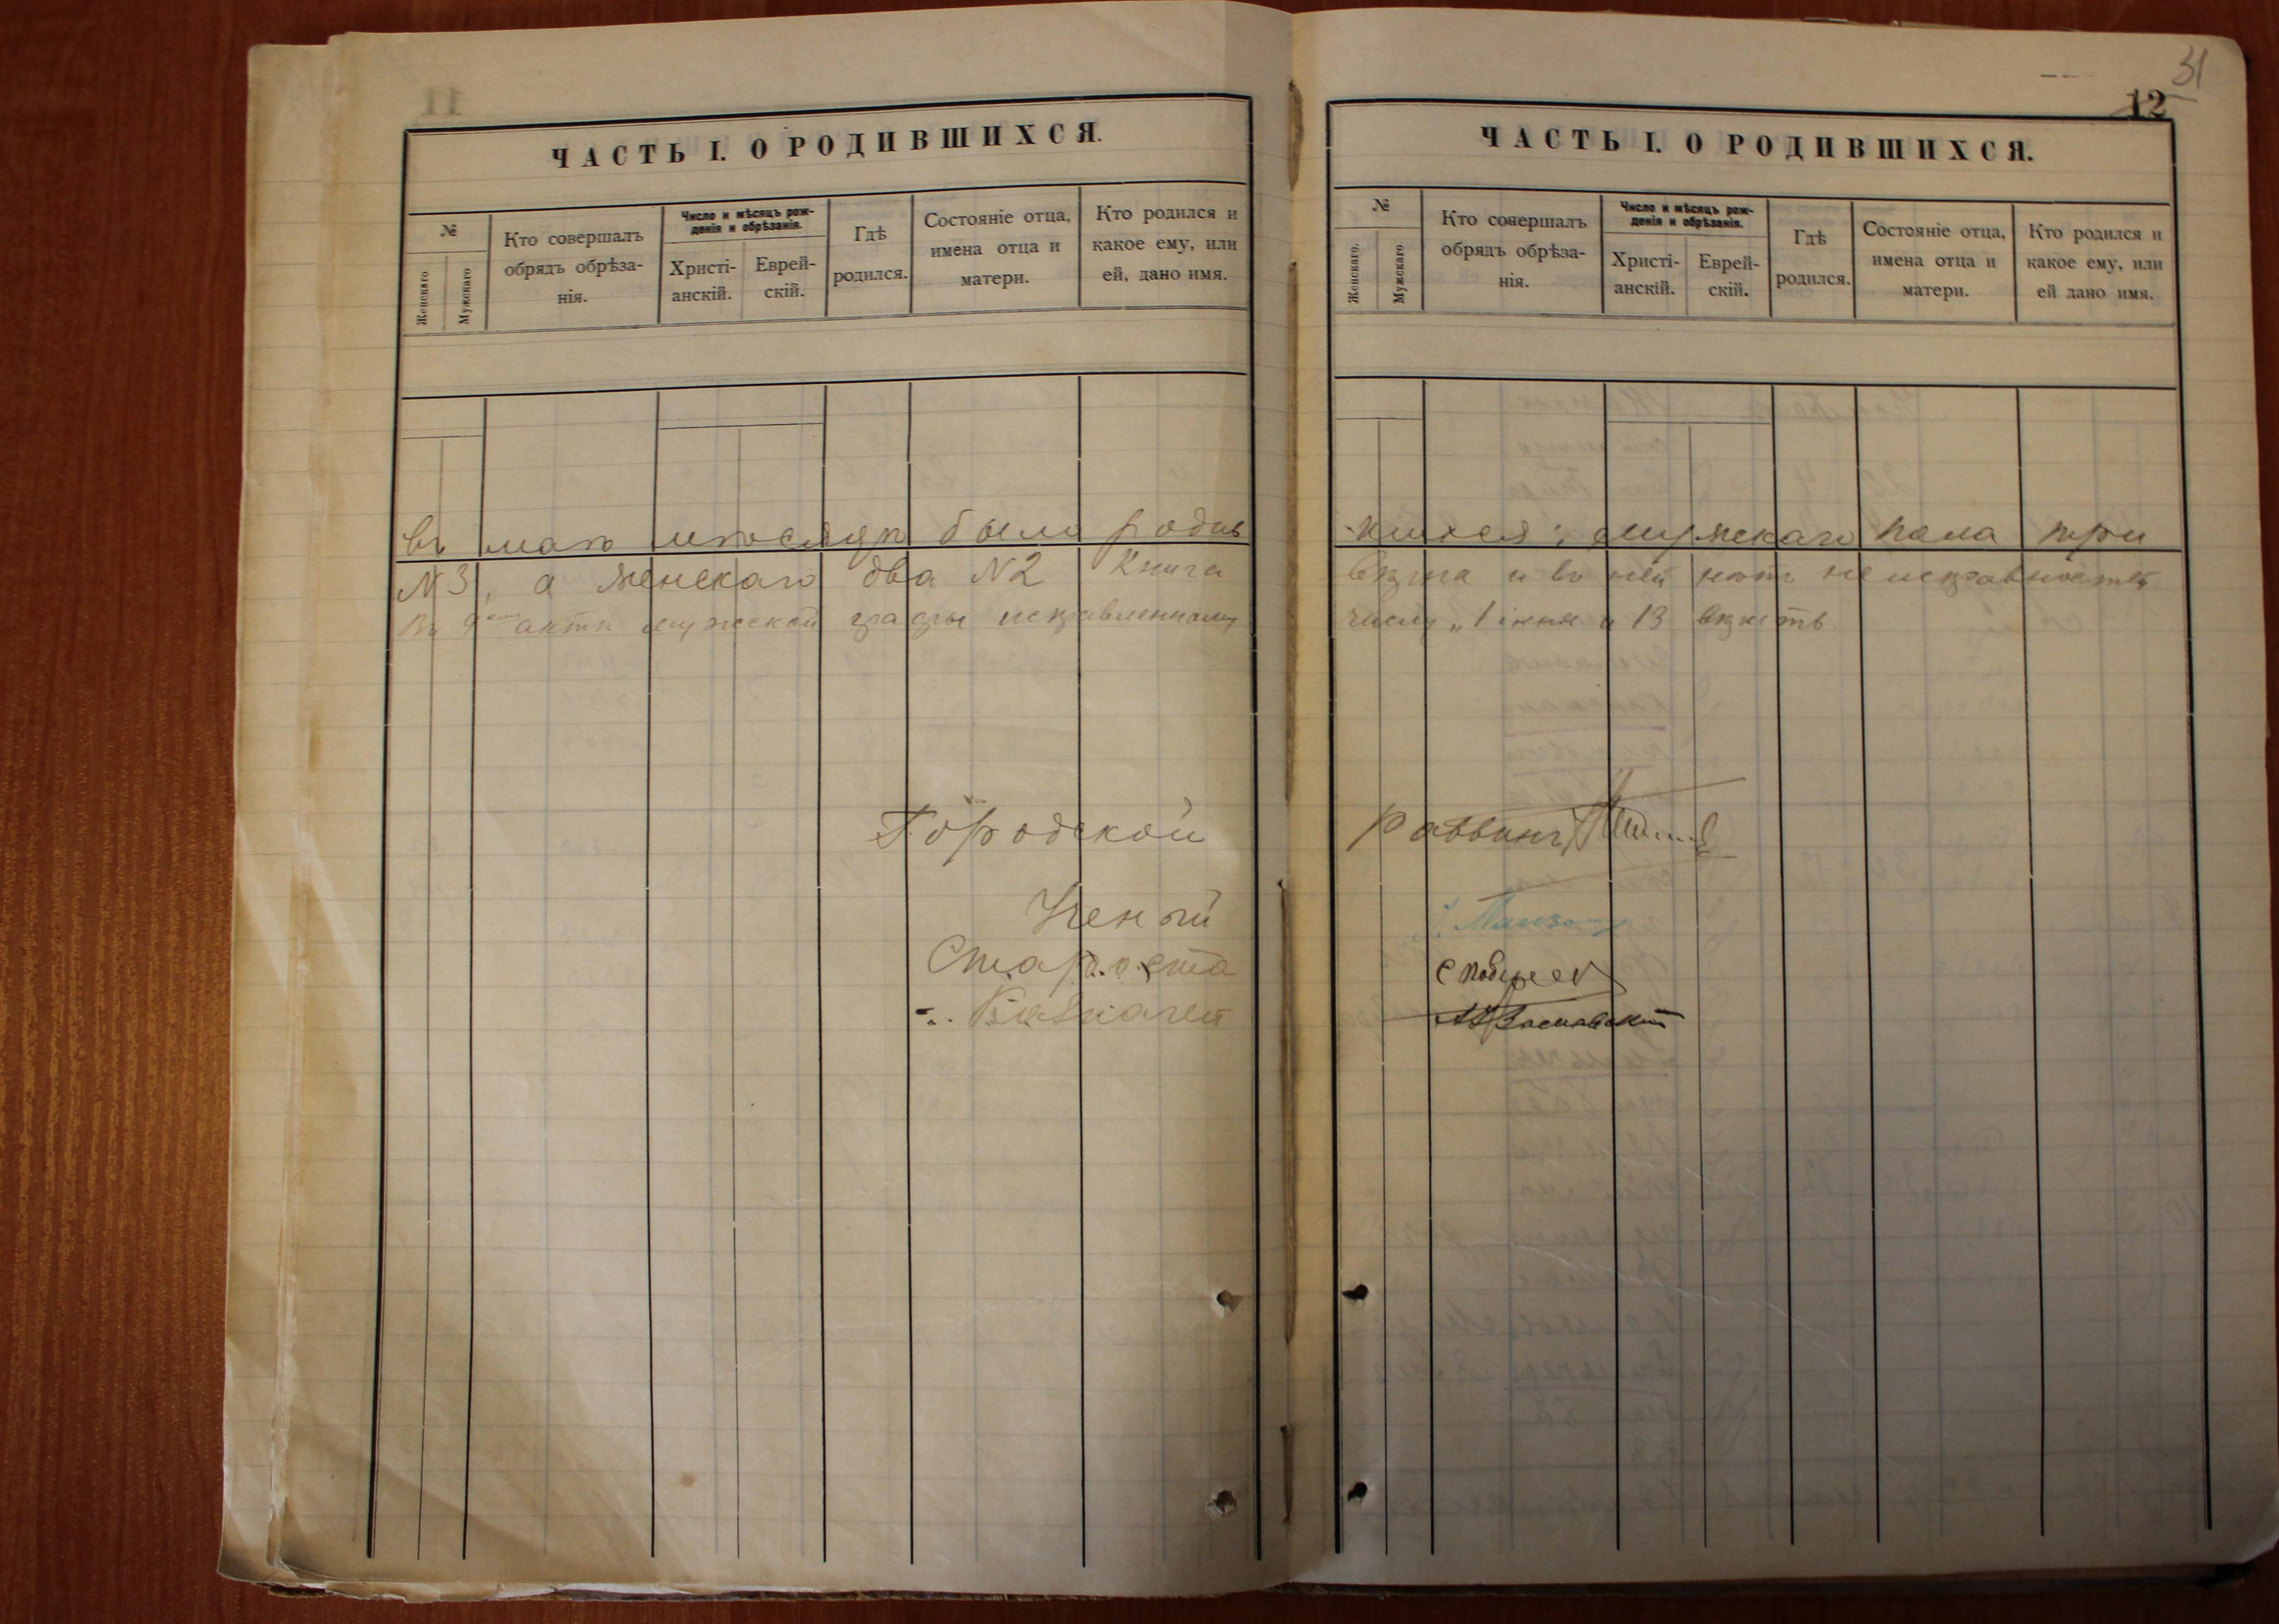 ЧАСТЬ I. О РОДИВШИХСЯ.
№
Женскаго
Мужскаго
Кто совершалъ
обрядъ обрѣза-
нія.
Число и мѣсяцъ рож-
денія и обрѣзанія.
Христі-
анскій.
Еврей-
скій.
Гдѣ
родился.
Состояніе отца,
имена отца и
матери.
Кто родился и
какое ему, или
ей, дано имя.
въ маѣ мѣсяцѣ было родив
№ 3, а женскаго два № 2 Книга
Въ актѣ мужской графы исправленному
Городской
Ученый
Староста
Казначей
31
12
ЧАСТЬ I. О РОДИВШИХСЯ.
№
Женскаго.
Мужскаго
Кто совершалъ
обрядъ обрѣза-
нія.
Число и мѣсяцъ рож-
денія и обрѣзанія.
Христі-
анскій.
Еврей-
скій.
Гдѣ
родился.
Состояніе отца,
имена отца и
матери.
Кто родился и
какое ему, или
ей дано имя.
шихся: мужскаго пола три
вѣрна и въ ней нѣтъ неисправностей
числу „1 іюня и 13 вѣрить
Раввинъ